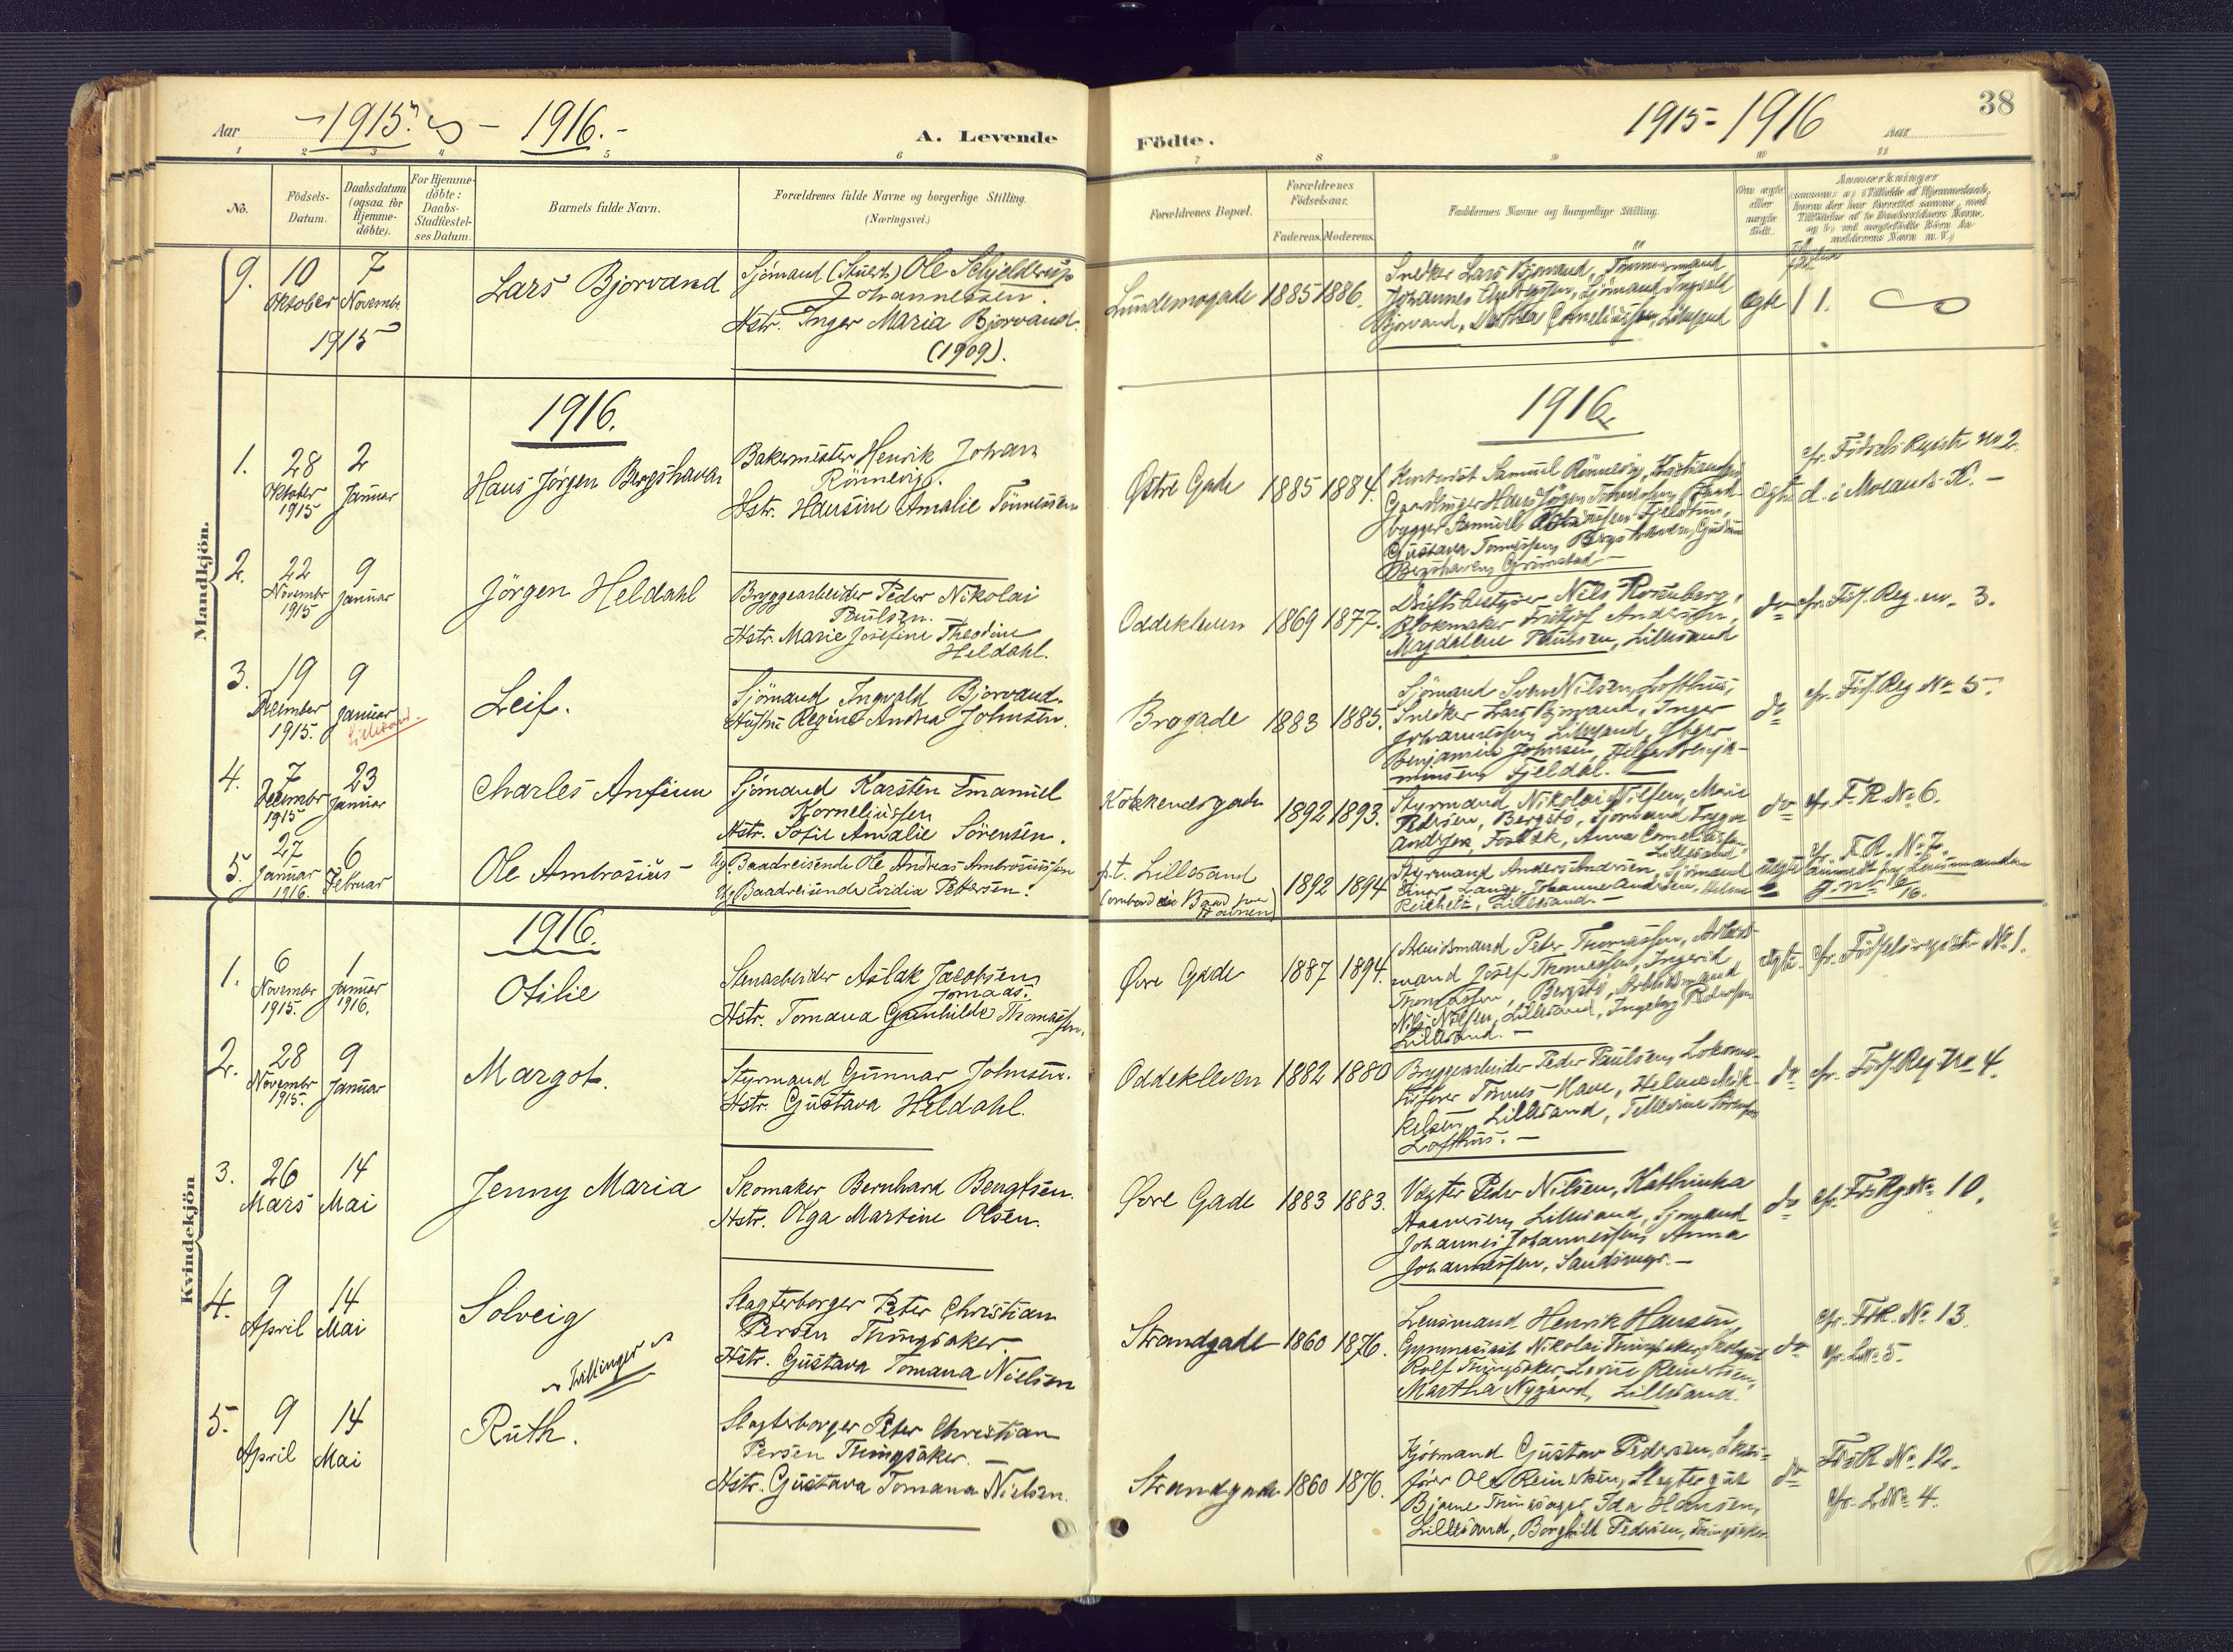 Aar 1915. - 1916.-
A. Levende
Födte.
1915-1916
Aar
38
1 2 3 4 5 6 7 8 9 10 11
No.
Födsels-
Datum.
Daabsdatum
(ogsaa for
Hjemme-
döbte).
For Hjemme-
döbte:
Daabs-
Stadfæstel-
ses Datum.
Barnets fulde Navn.
Forældrenes fulde Navne og borgerlige Stilling.
(Næringsvei.)
Forældrenes Bopæl.
Forældrenes
Födselsaar.
Faderens. Moderens.
Faddernes Navne og borgerlige Stilling.
Om ægte
eller
uægte
födt.
Anmærkninger
Mandkjön.
9. 10
Oktober
7
Novembr.
1915
Lars Bjorvand
Sjömand (Stuert) Ole Schjelderup
Johannessen.
Hstr. Inger Maria Bjorvand.
(1909).
Lundemogade 1885 1886.
Snedker Lars Bjorvand, Tömmermand
Johannes Sjömand Ingvald
Bjorvand, Corneliussen, Lillesand
ægte 11.
1916.
1916.
1. 28
Oktober
1915
2
Januar
Hans Jørgen Bergshaven
Bakermester Henrik Johan
Rönnevig.
Hstr. Hansine Amalie Tönnessen
Østre Gade 1885 1884.
Kontorist Samuel Rönnevig, Kristianssand
Gaardbruger Hans Jörgen Tönnessen,
bygger Samuel
Gustava Tönnessen, Bergshaven, Gudrun
Bergshaven, Grimstad
ægte
cfr. Födsels Registr No 2.
d. i Moland K. -
2. 22
Novembr
1915
9
Januar
Jörgen Heldahl
Bryggearbeider Peder Nikolai
Paulsen.
Hstr. Marie Josefine Theodine
Heldahl.
Oddekleven 1869 1877.
Driftsbestyrer Nils Rosenberg,
Blokmaker Fritjof Andersen,
Magdalene Paulsen, Lillesand
do cfr. Föds. Reg. no. 3.
3. 19
December
1915.
9
Januar
Lillesand.
Leif.
Sjömand Ingvald Bjorvand.
Hustru Regine Andrea Johnsen.
Brogade 1883 1885.
Sjömand Sven Nilsen, Lofthus,
Snedker Lars Bjorvand, Inger
Johannessen, Lillesand,
Benjamin Johnsen, Helga Benja-
minsen Fjeldal.
do
cfr. Föds. Reg No 5.
4. 7
Decembr
1915
23
Januar
Charles Anfinn
Sjömand Karsten Emanuel
Korneliussen
Hstr. Sofie Amalie Sörensen.
Kokkenesgade 1892 1893.
Styrmand Nikolai Nilsen, Marie
Pedersen, Bergstö, Sjömand Trygve
Andersen, Fosbæk, Anna Corneliussen
Lillesand
do cfr. F.R. No 6.
5. 27
Januar
1916.
6
Februar
Ole Ambrosius
Ug. Baadreisende Ole Andreas Ambrosiussen
Ug. Baadreisende Evidia Pettersen.
p.t. Lillesand
(ombord i en Baad paa
Havnen)
1892 1894
Styrmand Anders Andersen, Sjömand
Einar Lange, Johanne Andersen, Helene
Reichelt, Lillesand.
uægte
cfr. F.R. No 7.
anmeldt fra Lensmanden
Kvindekjön
1916.
1. 6
Novembr
1915.
1
Januar
1916.
Otilie
Stenarbeider Aslak Jacobsen
Jomaas.
Hstr. Tomana Gunhilde Thomassen.
Øvre Gade 1887 1894.
Arbeidsmand Peter Thomassen, Arbeids-
mand Josef Thomassen, Ingerid
Thomassen, Bergstö, Arbeidsmand
Nils Nilsen, Lillesand, Ingeborg Pedersen
Lillesand.
ægte. cfr. Födselsregistr No 1.
2. 28
Novembr
1915.
9
Januar
Margot.
Styrmand Gunnar Johnsen.
Hstr. Gustava Heldahl.
Oddekleven 1882 1880
Bryggearbeider Peder Paulsen, Lokomo-
tivfører Tönnes Have, Helene Mik-
kelsen, Lillesand, Tellevine Sörensen
Lofthus.
do cfr. Föds. Reg No 4.
3. 26
Mars
14
Mai
Jenny Maria
Skomaker Bernhard Bengtsen.
Hstr. Olga Martine Olsen.
Øvre Gade 1883 1883.
Vegter Peder Nilsen, Kathinka
Haavesen, Lillesand, Sjömand
Johannes Johannessen, Anna
Johannessen, Sandsmyr.
do cfr. Fds Rg No 10.
4. 9
April
14
Mai
Solveig
Slagterborger Peter Christian
Persen Thingsaker.
Hstr. Gustava Tomana Nielsen
Tvillinger
Strandgade 1860 1876.
Lensmand Henrik Hansen,
Gymnasiast Nikolai Thingsaker, Skolegut
Rolf Thingsaker, Lovise Reinertsen,
Martha Nygaard, Lillesand.
do
cfr. FdR. No 13.
cfr. LNo 5.
5. 9
April
14
Mai
Ruth.
Slagterborger Peter Christian
Persen Thingsaker.
Hstr. Gustava Tomana Nielsen.
Strandgade 1860 1876.
Sjömand Gustav Pedersen, Skri-
för Ole Reinertsen, Slagtergut
Bjarne Thingsager, Ida Hansen,
Lillesand, Borghild Pedersen, Thingsaker.
do
FdsR No 12.
cfr. LNo 4.